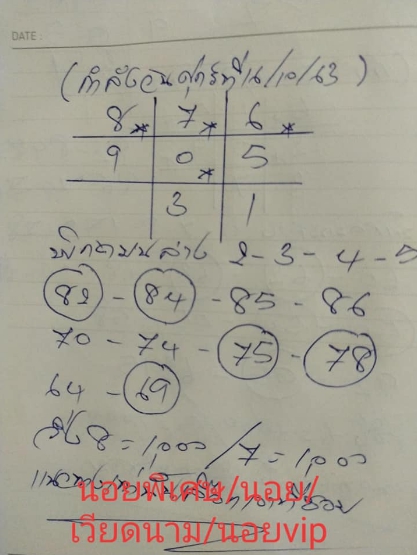 DATE:
(กำลังวันศุกร์ที่ 16/10/63)
8* 7* 6*
9 0* 5
3 1
2-3-4-5
82 - 84 - 85 - 86
70 - 74 - 75 - 78
64 - 69
วิ่ง 8 = 1,000 / 7 = 1,000
นอยพิเศษ/นอย/
เวียดนาม/นอยvip